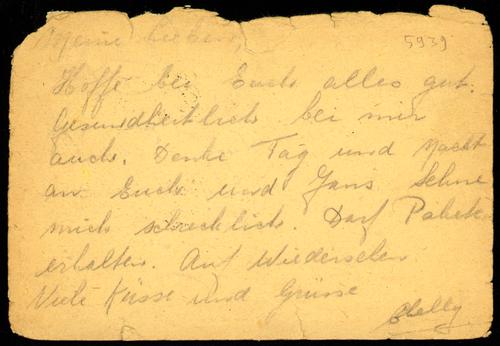 Meine Lieben,
5939
Hoffe bei Euch alles gut.
Gesundheitlich bei mir
auch. Denke Tag und Nacht
an Euch und Hans Sehne
mich schrecklich. Darf Pakete
erhalten. Auf Wiedersehen
Viele Küsse und Grüsse